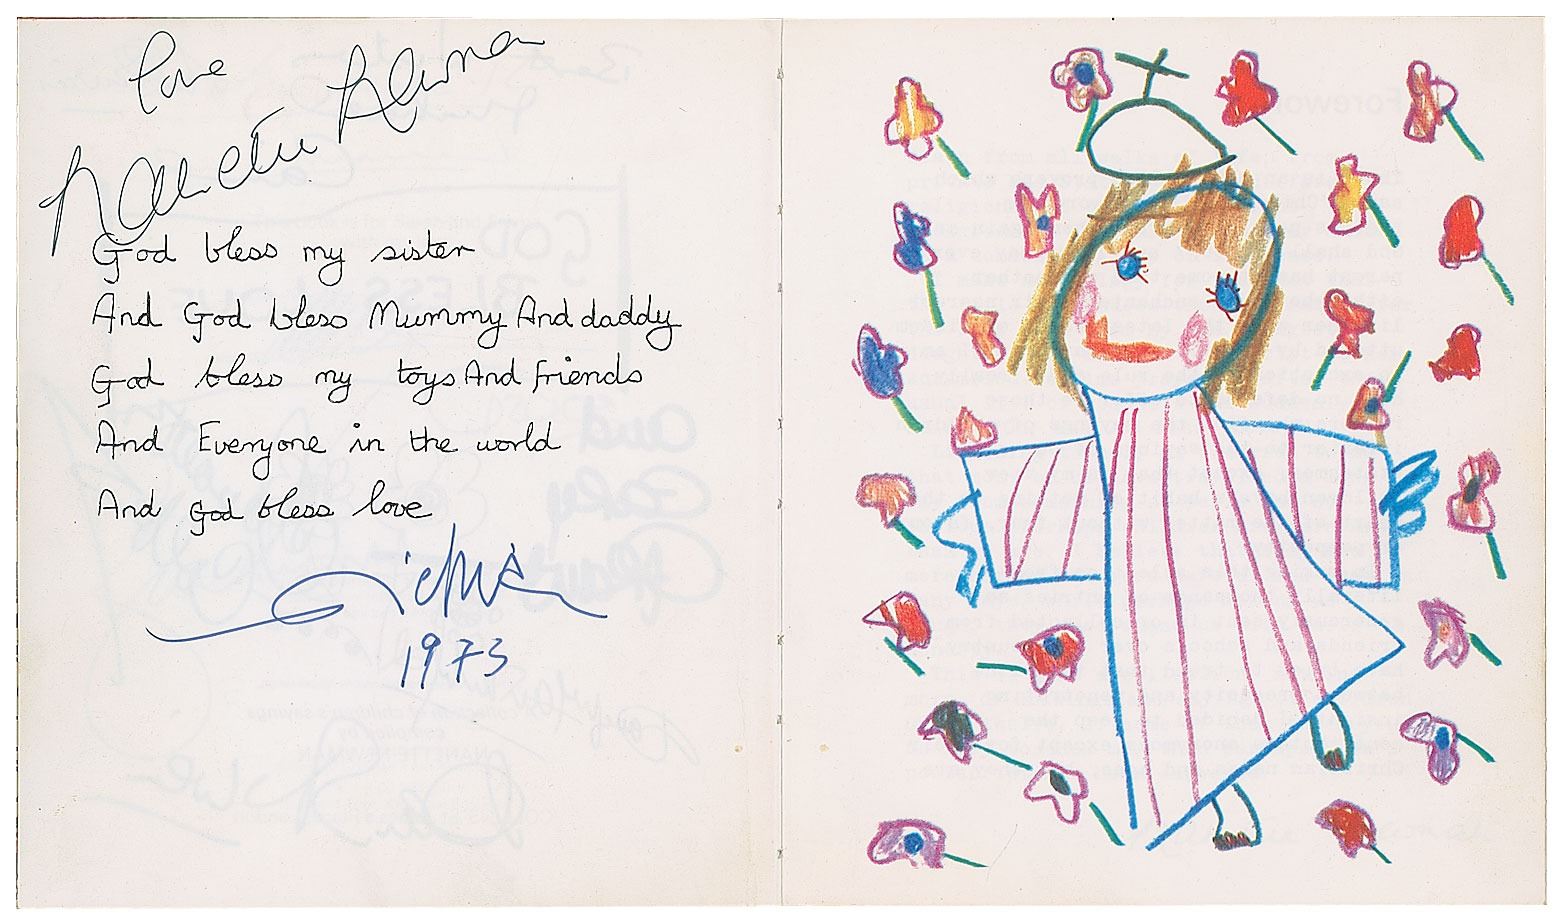 love
Nanette Newman
God bless my sister
And God bless Mummy And daddy
God bless my toys And friends
And Everyone in the world
And god bless love
1973